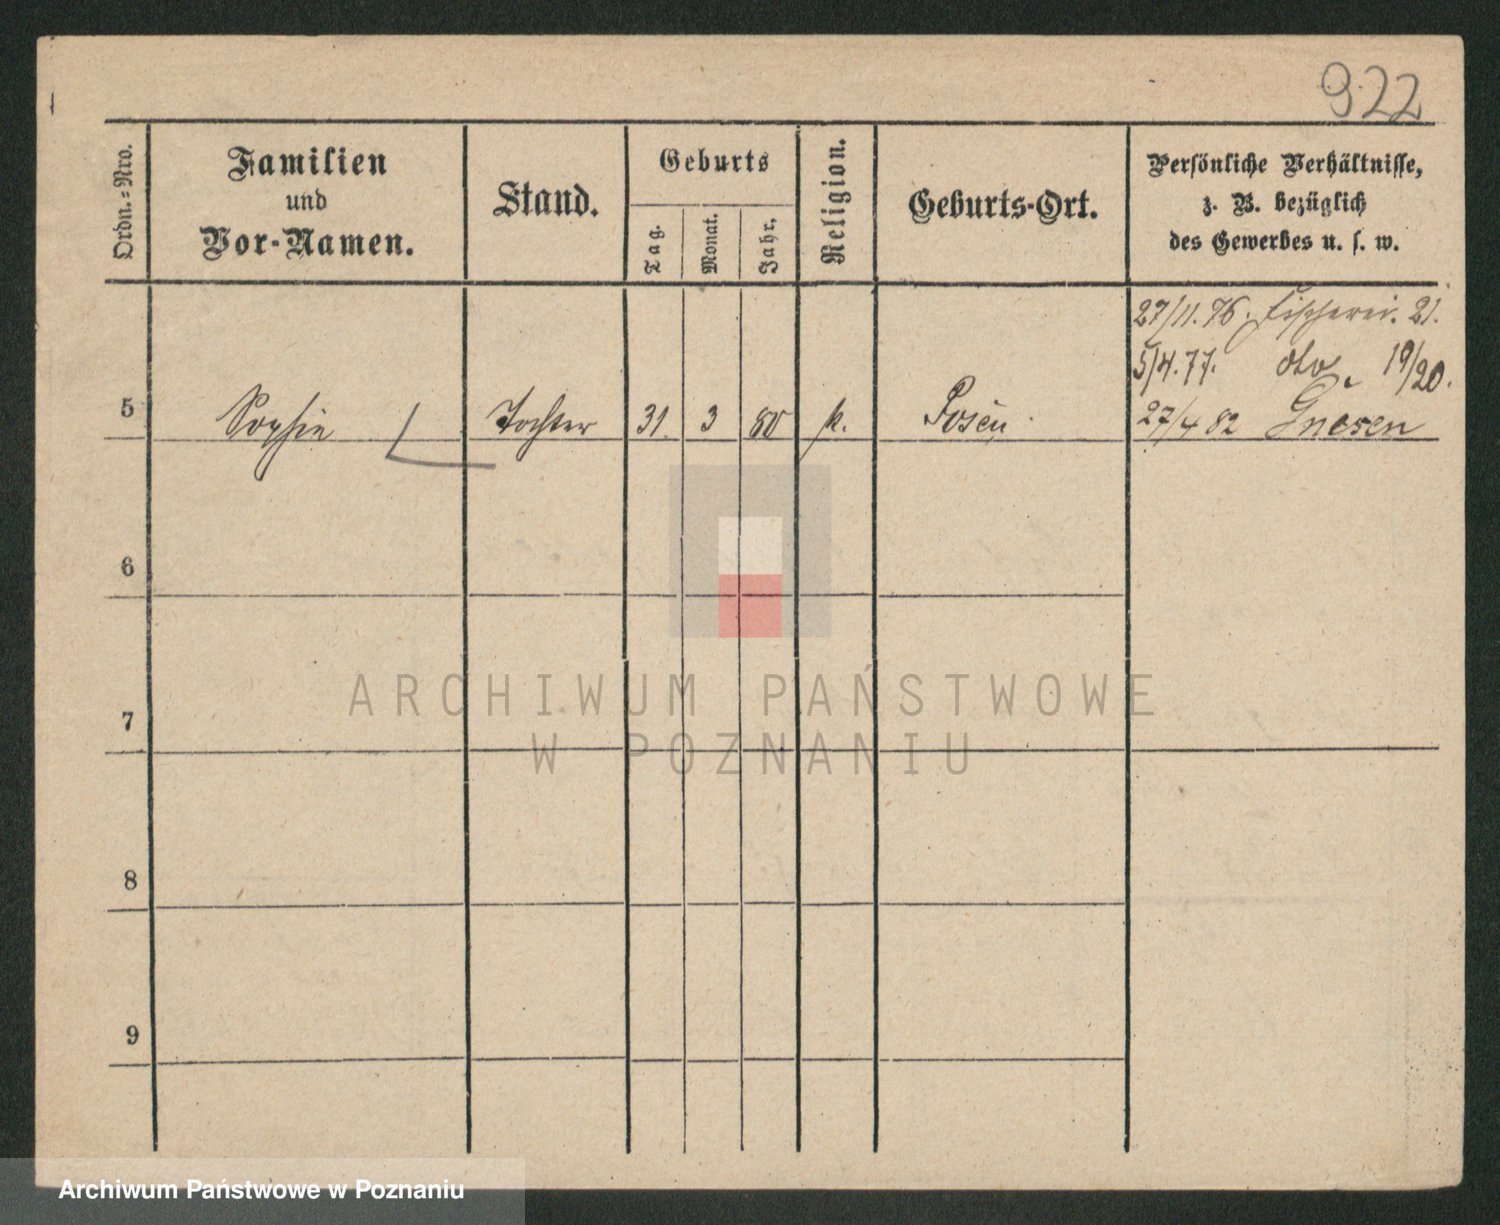 922
Ordn.-Nro.
Familien
und
Vor-Namen.
Stand.
Geburts
Tag.
Monat.
Jahr.
Religion.
Geburts-Ort.
Persönliche Verhältnisse,
z. B. bezüglich
des Gewerbes u. s. w.
27/11. 76. Fischerei. 21.
5/4. 77. dto. 19/20.
5 Sophie Tochter 31 3 80 k. Posen 27/4 82 Gnesen
6
7
8
9
ARCHIWUM PAŃSTWOWE
W POZNANIU
Archiwum Państwowe w Poznaniu